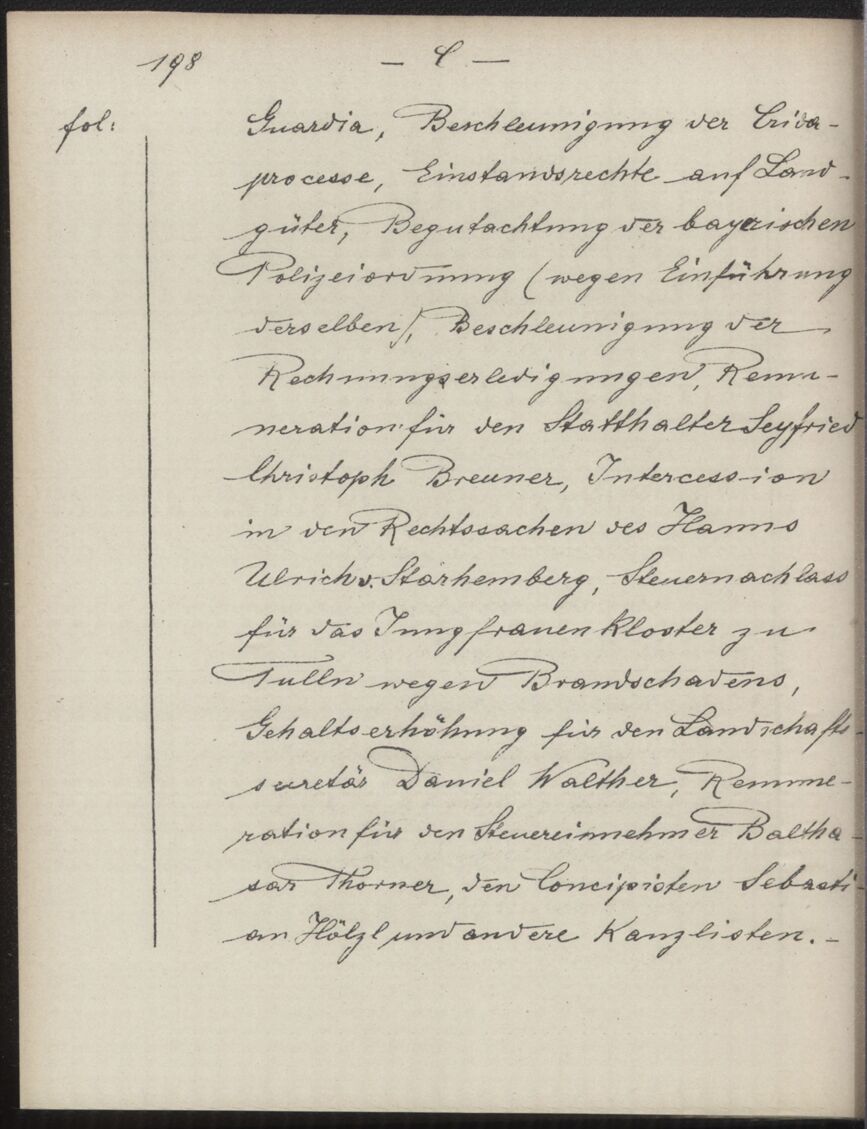 198 — L —
fol: Guardia, Beschleunigung der Crida-
processe, Einstandsrechte auf Land-
güter, Begutachtung der bayerischen
Polizeiordnung (wegen Einführung
derselben), Beschleunigung der
Rechnungserledigungen, Remu-
neration für den Statthalter Seyfried
Christoph Breuner, Intercession
in den Rechtssachen des Hanns
Ulrich v. Starhemberg, Steuernachlass
für das Jungfrauenkloster zu
Tulln wegen Brandschadens,
Gehaltserhöhung für den Landschafts-
secretär Daniel Walther, Remune-
ration für den Steuereinnehmer Baltha-
sar Thorner, den Concipisten Sebasti-
an Hölzl und andere Kanzlisten. –